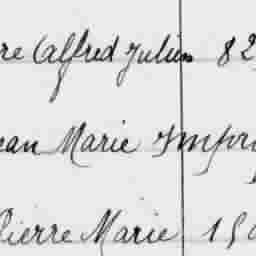 re (Alfred Julien 82
ean Marie Impri
Pierre Marie 15